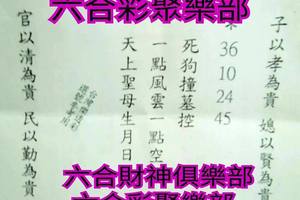 六合彩聚樂部
子以孝為貴 媳以賢為貴
36
10
24
45
死狗撞墓控
一點風雲一點空
天上聖母生月日
官以清為貴 民以勤為貴
六合財神俱樂部
六合彩聚樂部